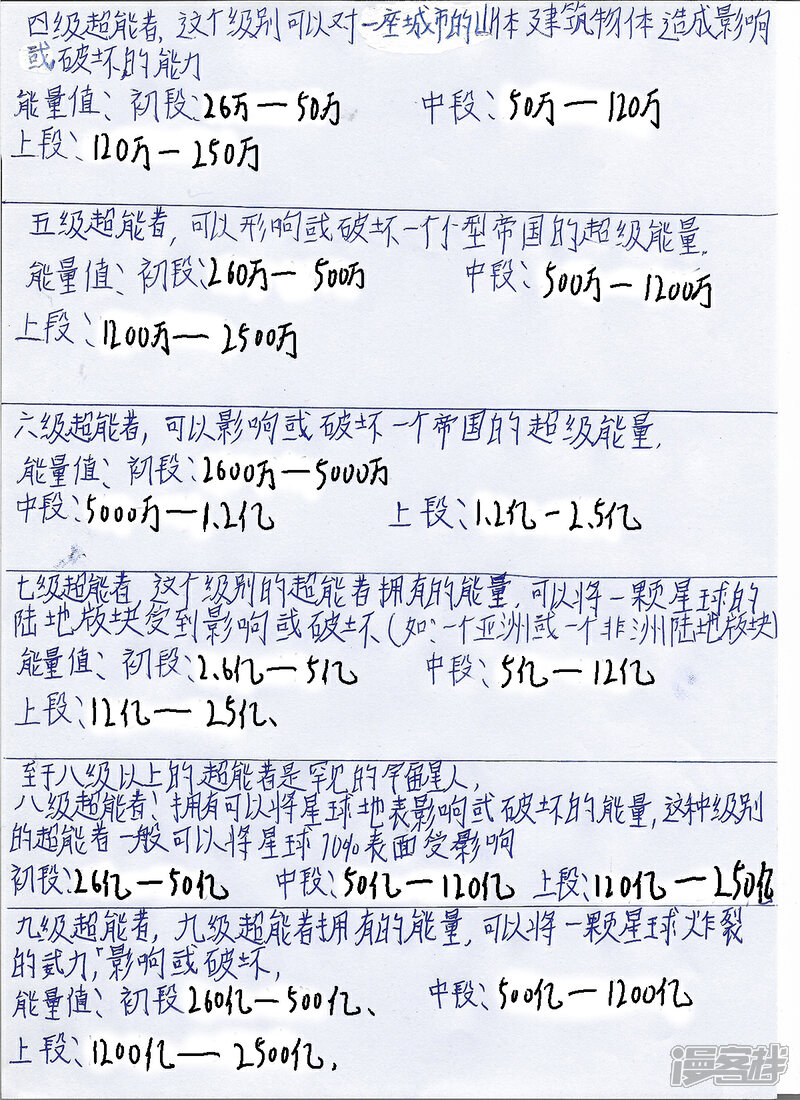 四级超能者，这个级别可以对一座城市的山体及建筑物体造成影响
或破坏的能力
能量值：初段：26万—50万 中段：50万—120万
上段：120万—250万
五级超能者，可以形响或破坏一个小型帝国的超级能量。
能量值：初段：260万—500万 中段：500万—1200万
上段：1200万—2500万
六级超能者，可以影响或破坏一个帝国的超级能量。
能量值：初段：2600万—5000万
中段：5000万—1.2亿 上段：1.2亿-2.5亿
七级超能者，这个级别的超能者拥有的能量，可以将一颗星球的
陆地版块受到影响或破坏（如：一个亚洲或一个非洲陆地版块）
能量值：初段：2.6亿—5亿 中段：5亿—12亿
上段：12亿—25亿、
至于八级以上的超能者是罕见的宇宙星人，
八级超能者：拥有可以将星球地表影响或破坏的能量，这种级别
的超能者一般可以将星球70%表面受影响
初段：26亿—50亿 中段：50亿—120亿 上段：120亿—250亿
九级超能者，九级超能者拥有的能量，可以将一颗星球炸裂
的武力，影响或破坏，
能量值：初段260亿—500亿、 中段：500亿—1200亿
上段：1200亿—2500亿，
漫客栈